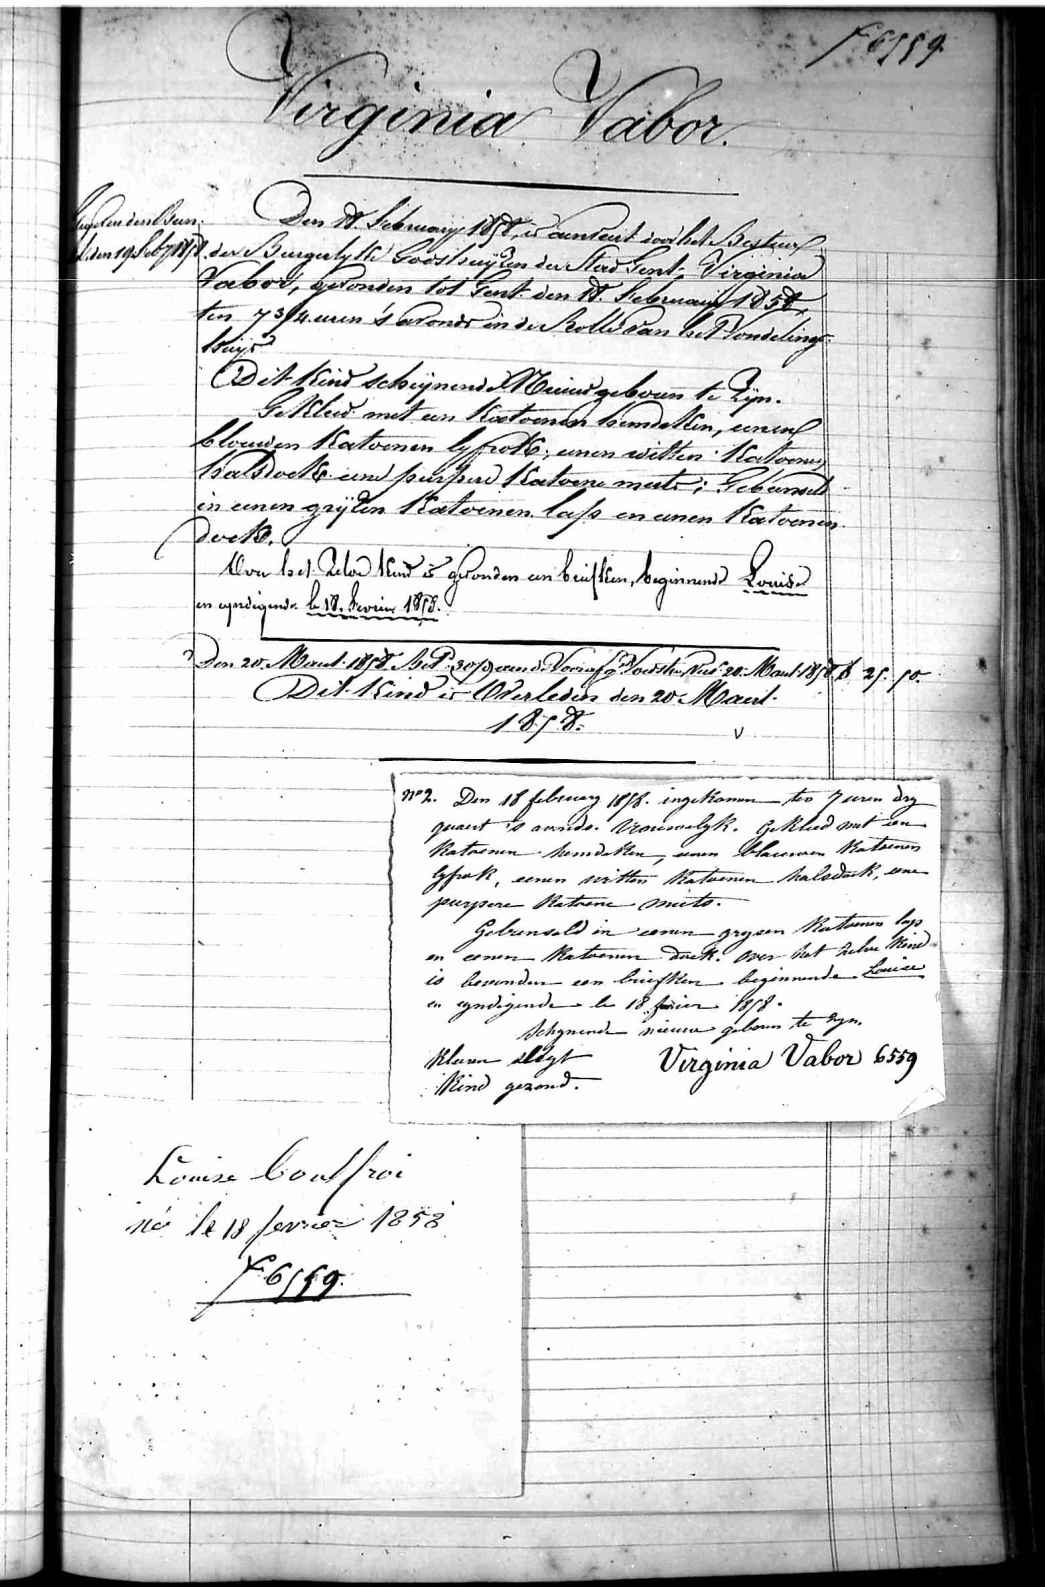 F 6559.
Virginia Vabor.
den 19 Feb 1858.
Den 18. February 1858, is aenveert door het Bestuur
der Burgerlyke Godshuyzen der Stad Gent, Virginia
Vabor, gevonden tot Gent den 18. February 1858,
ten 7 3/4 uren 's avonds in de Rolle van het Vondeling
huys
Dit Kind schynende Nieuw geboren te zyn.
Gekleed met een Katoenen hemdeken, eenen
blauwen Katoenen lyfrok, eenen witten Katoenen
halsdoek eene purpere Katoene muts; Gebunseld
in eenen gryzen Katoenen lap en eenen Katoenen
doek.
Over het zelve Kind is gevonden een briefken, beginnende Louise
en eyndigende le 18. Fevrier 1858.
Den 20. Maart 1858 20 Maart 1858 25. 50.
Dit Kind is Overleden den 20 Maert
1858.
n° 2. Den 18 february 1858. ingekomen ten 7 uren dry
quaert 's avonds. Vrouwelyk. Gekleed met een
Katoenen hemdeken, eenen blauwen Katoenen
lyfrok, eenen witten Katoenen halsdoek, eene
purpere Katoene muts.
Gebunseld in eenen grysen Katoenen lap
en eenen Katoenen doek. Over het zelve Kind
is bevonden een briefken beginnende Louise
en eyndigende le 18 fevrier 1858.
Schynende nieuw geboren te zyn.
Kleeren slegt Virginia Vabor 6559
Kind gezond.
Louise
né le 18 fevrier 1858
F 6559.